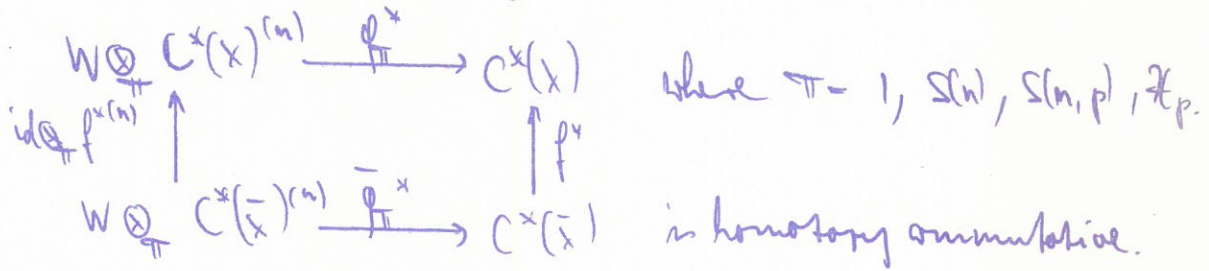 W⊗_π C*(X)^(n) φ_π* C*(X) where π = 1, S(n), S(n,p), ℤ_p.
id⊗_π f*^(n) f*
W⊗_π C*(X̄)^(n) φ̄_π* C*(X̄) is homotopy commutative.